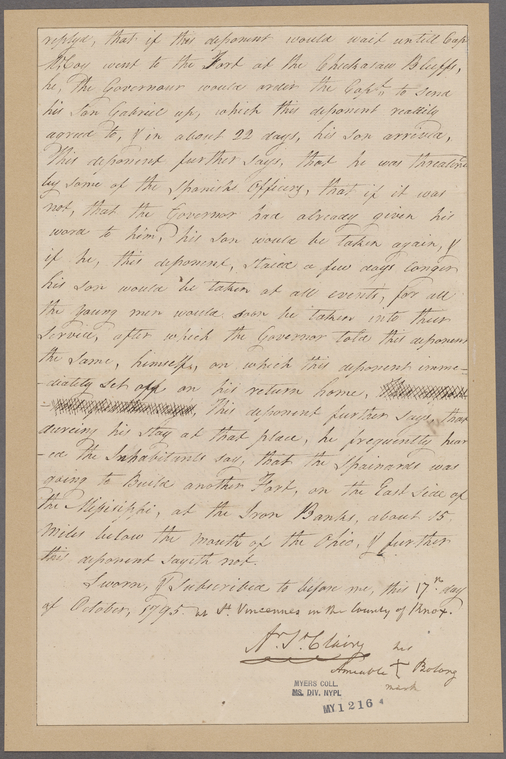 replyd, that if this deponent would wait until Capt
McCoy went to the Fort at the Chickasaw Bluffs,
he, the Governour would order the Capt. to send
his Son Gabriel up, which this deponent readily
agreed to, & in about 22 days, his son arrived,
This deponent further Says, that he was threatend
by some of the Spanish Officers, that if it was
not, that the Governor had already given his
word to him, his son would be taken again, &
if he, this deponent, Staid a few days longer
his son would be taken at all events, for all
the young men would soon be taken into their
Service, after which the Governor told this deponent
the Same, himself, on which this deponent imme-
-diately set off on his return home,
This deponent further says, that
dureing his stay at that place, he frequently hear
-ed the Inhabitants say, that the Spainards was
going to Build another Fort, on the East side of
the Missisippi, at the Iron Banks, about 15
miles below the mouth of the Ohio, & further
this deponent sayeth not.
Sworn, & Subscribed to before me, this 17th day
of October, 1795 at St. Vincennes in the County of Knox.
Ar. St. Clair
his
Amable + Bolong
mark
MYERS COLL.
MS. DIV. NYPL
MY 1216 4